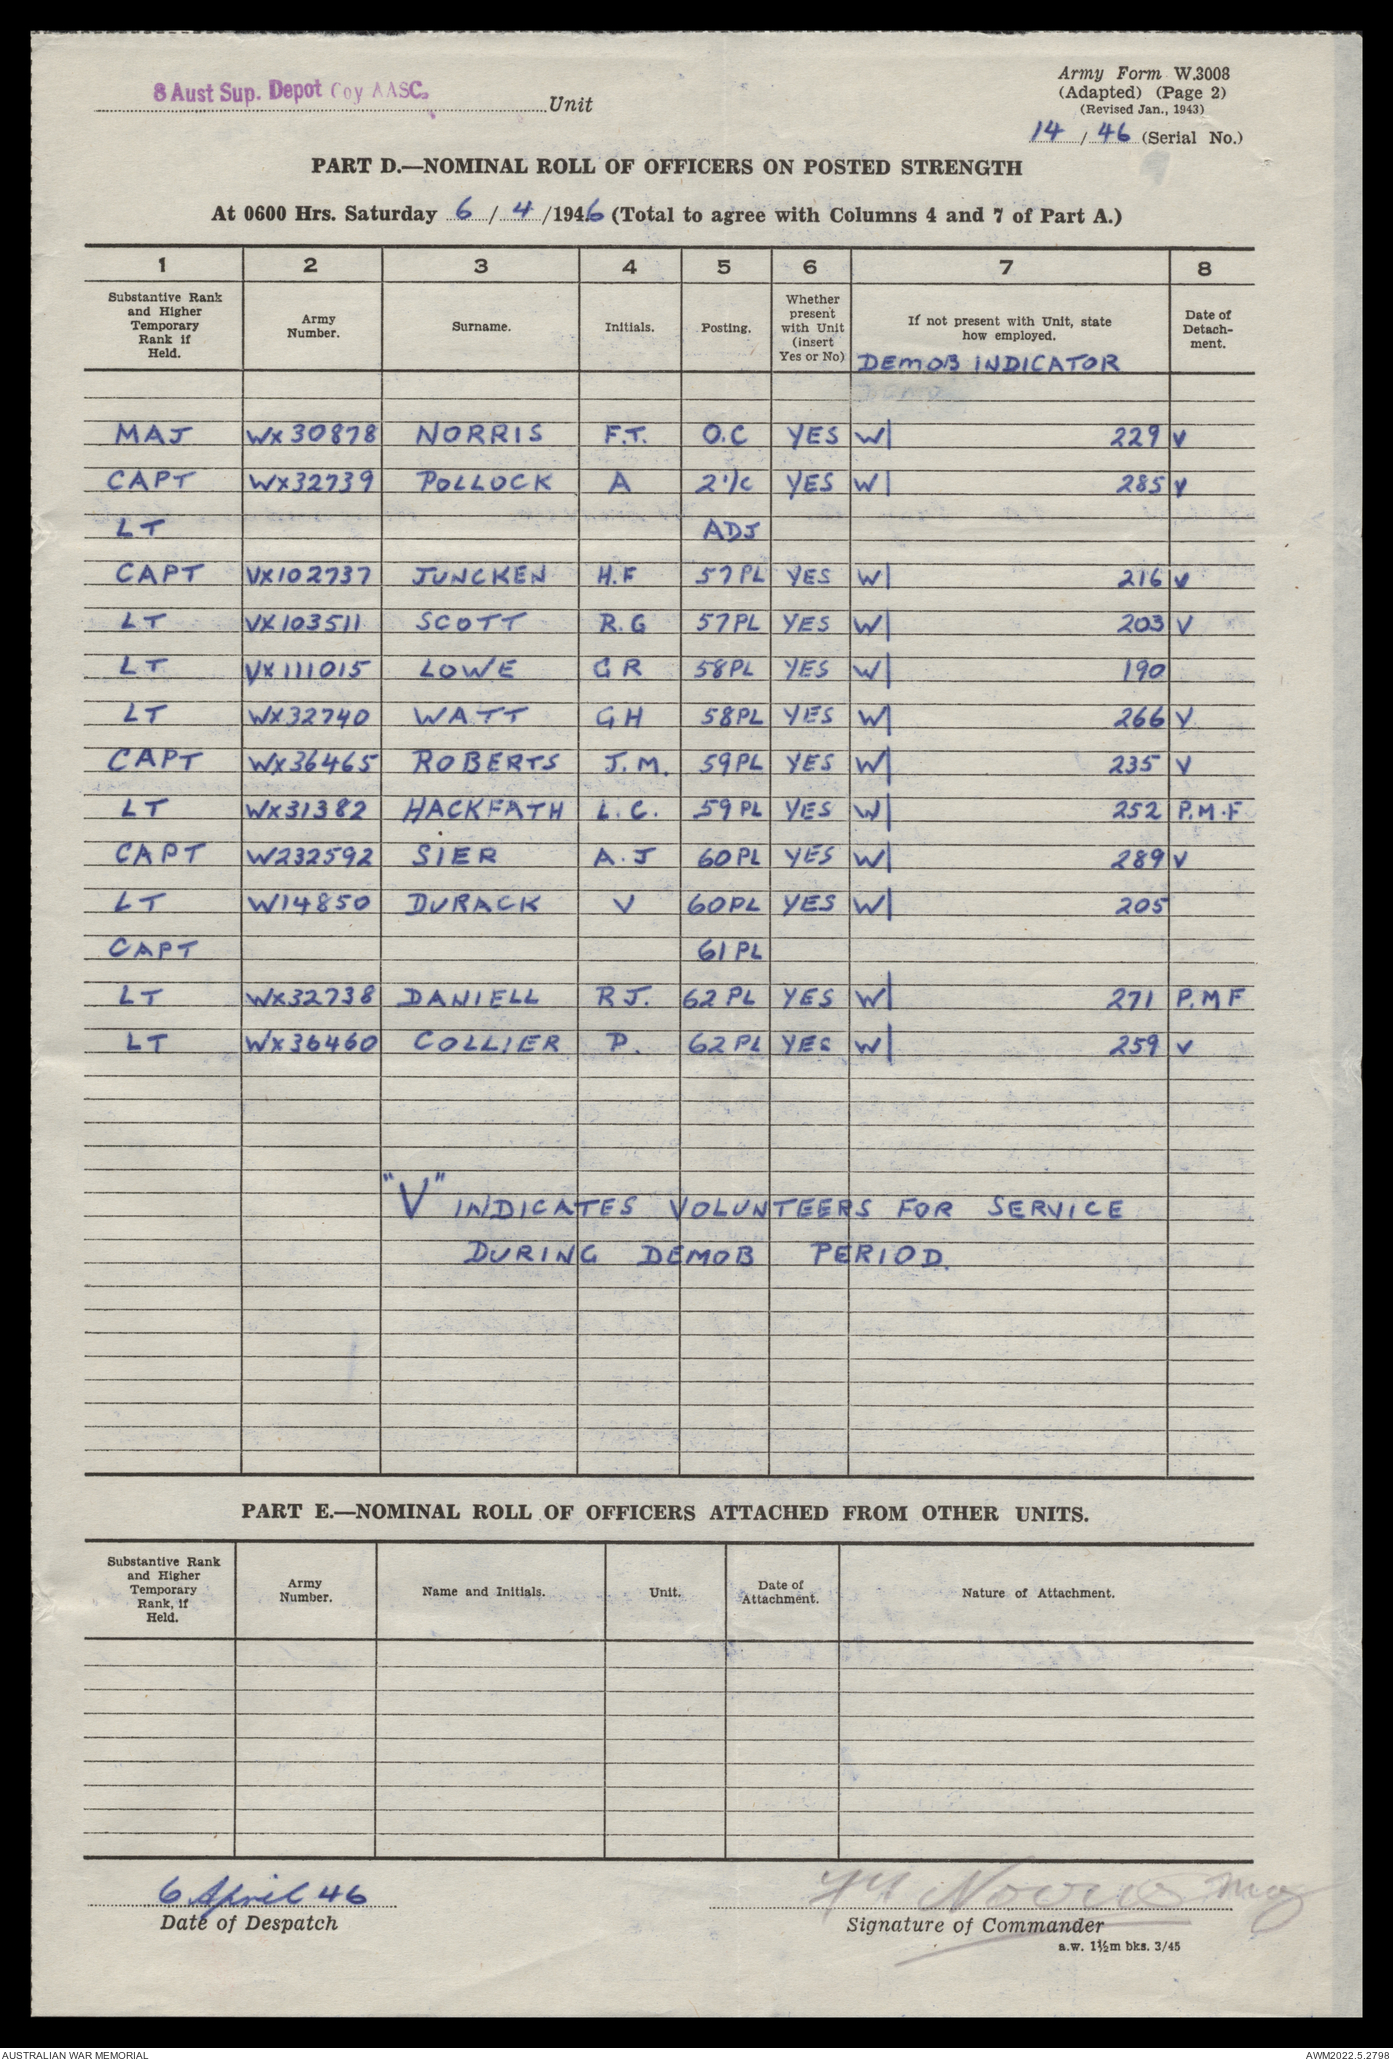 8 Aust Sup. Depot Coy AASC. Unit
Army Form W.3008
(Adapted) (Page 2)
(Revised Jan., 1943)
14 / 46 (Serial No.)
PART D.—NOMINAL ROLL OF OFFICERS ON POSTED STRENGTH
At 0600 Hrs. Saturday 6 / 4 /1946 (Total to agree with Columns 4 and 7 of Part A.)
1 2 3 4 5 6 7 8
Substantive Rank and Higher Temporary Rank if Held. Army Number. Surname. Initials. Posting. Whether present with Unit (insert Yes or No) If not present with Unit, state how employed. Date of Detach-ment.
DEMOB INDICATOR
MAJ WX30878 NORRIS F.T. O.C YES W| 229 V
CAPT WX32739 POLLOCK A 2I/C YES W| 285 V
LT ADJ
CAPT VX102737 JUNCKEN H.F 57PL YES W| 216 V
LT VX103511 SCOTT R.G 57PL YES W| 203 V
LT VX111015 LOWE G R 58PL YES W| 190
LT WX32740 WATT G H 58PL YES W| 266 V
CAPT WX36465 ROBERTS J.M. 59PL YES W| 235 V
LT WX31382 HACKFATH L.C. 59PL YES W| 252 P.M.F
CAPT W232592 SIER A.J 60PL YES W| 289 V
LT W14850 DURACK V 60PL YES W| 205
CAPT 61PL
LT WX32738 DANIELL R J. 62PL YES W| 271 P.M F
LT WX36460 COLLIER P. 62PL YES W| 259 V
"V" INDICATES VOLUNTEERS FOR SERVICE
DURING DEMOB PERIOD.
PART E.—NOMINAL ROLL OF OFFICERS ATTACHED FROM OTHER UNITS.
Substantive Rank and Higher Temporary Rank, if Held. Army Number. Name and Initials. Unit. Date of Attachment. Nature of Attachment.
6 April 46
Date of Despatch
Norris Maj
Signature of Commander
a.w. 1½m bks. 3/45
AUSTRALIAN WAR MEMORIAL
AWM2022.5.2798